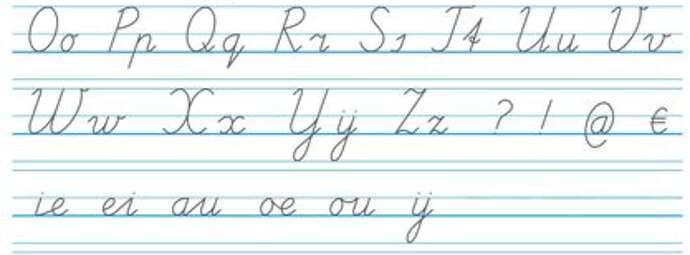 Oo Pp Qq Rr Ss Tt Uu Vv
Ww Xx Yÿ Zz ? ! @ €
ie ei au oe ou ij